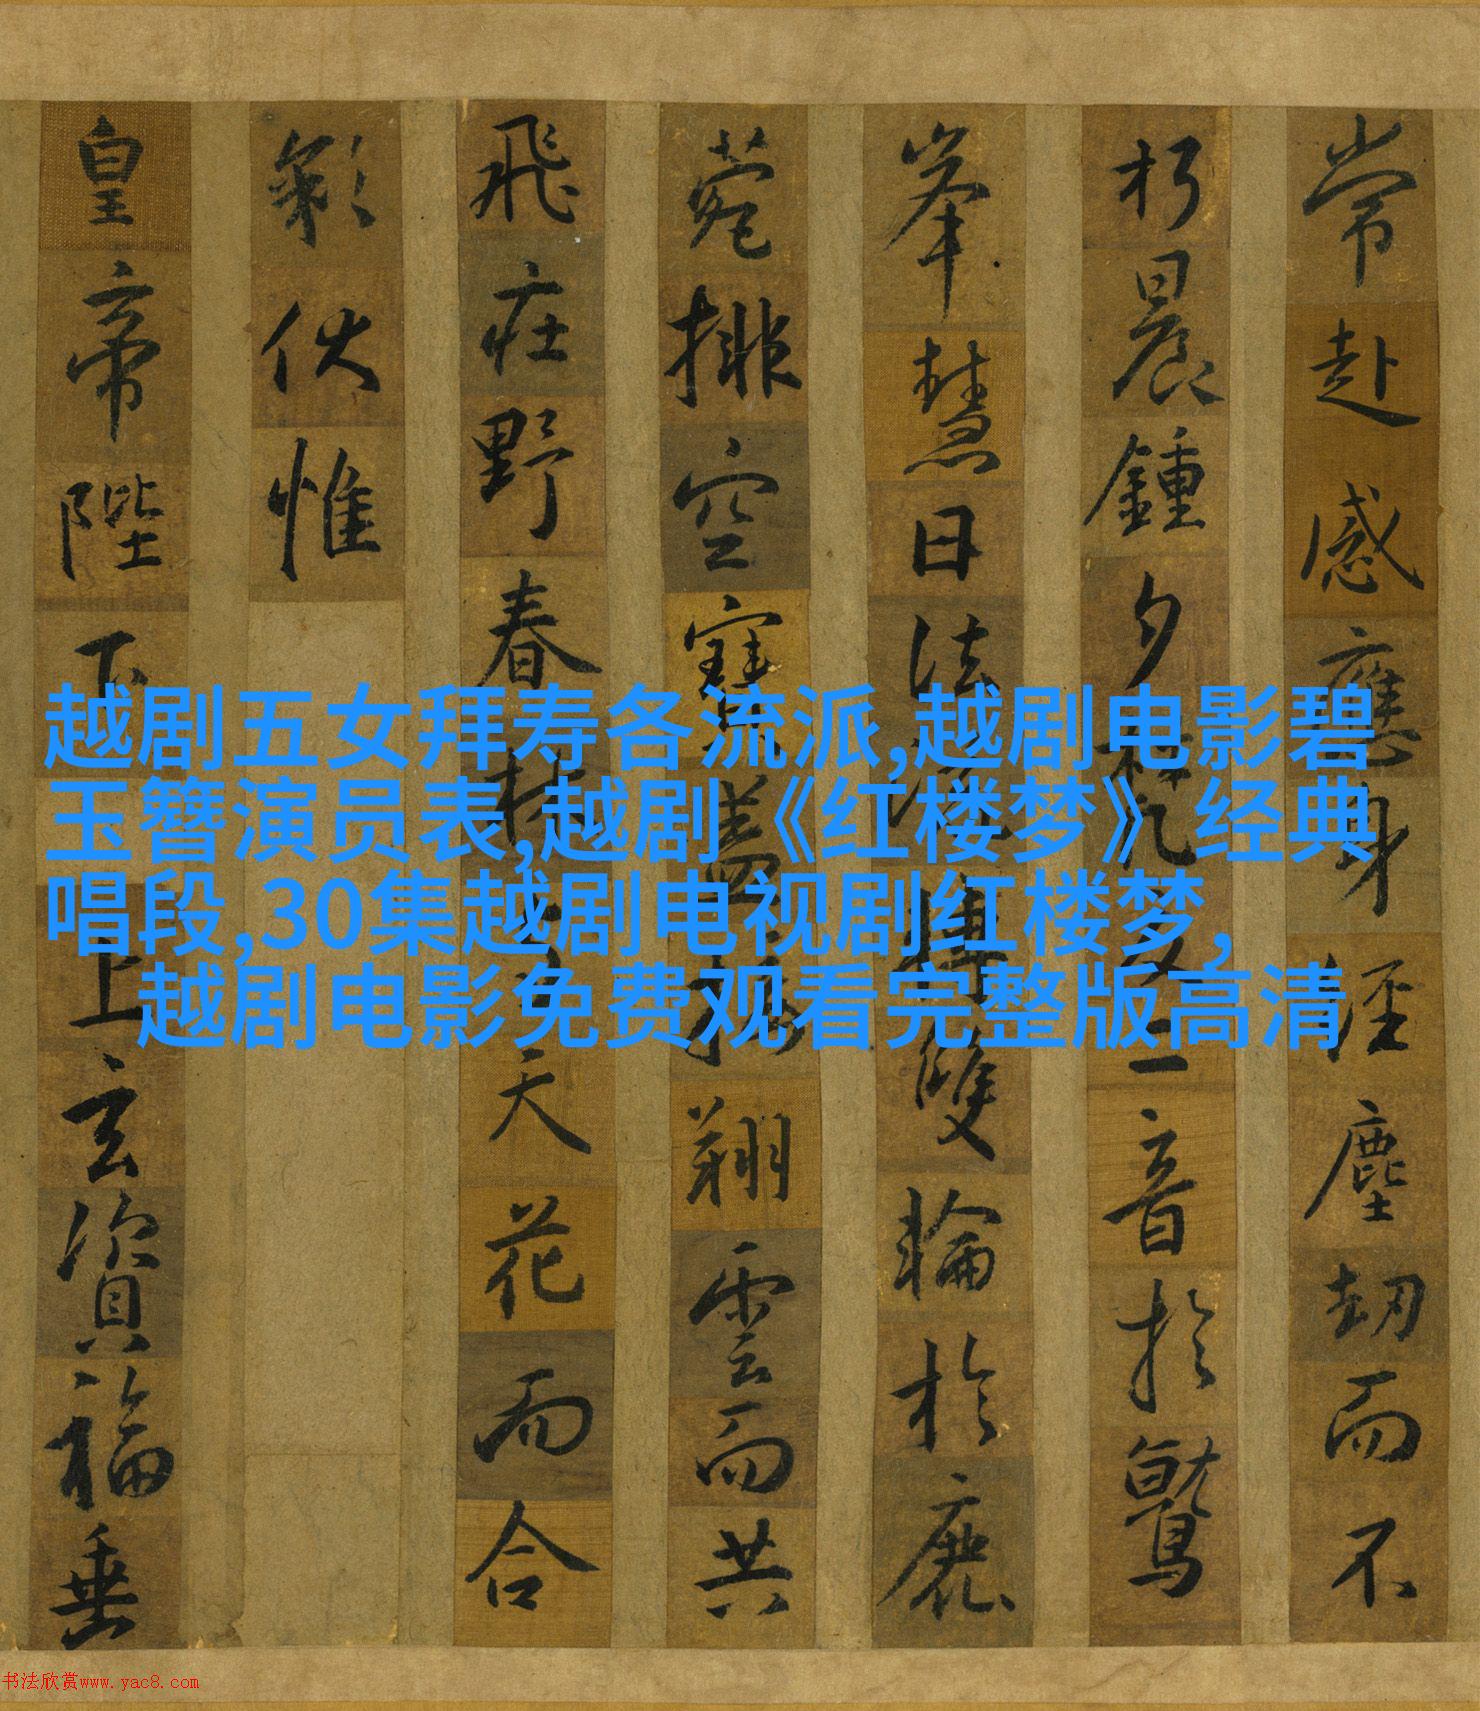 常赴感應身經塵劫而不
朽晨鍾夕梵交二音於鷲
峯慧日法流轉雙輪於鹿
菀排空寶蓋接翔雲而共
飛莊野春林與天花而合
彩伏惟
皇帝陛下上玄資福垂
越剧五女拜寿各流派,越剧电影碧
玉簪演员表,越剧《红楼梦》经典
唱段,30集越剧电视剧红楼梦,
越剧电影免费观看完整版高清
书法欣赏www.yac8.com